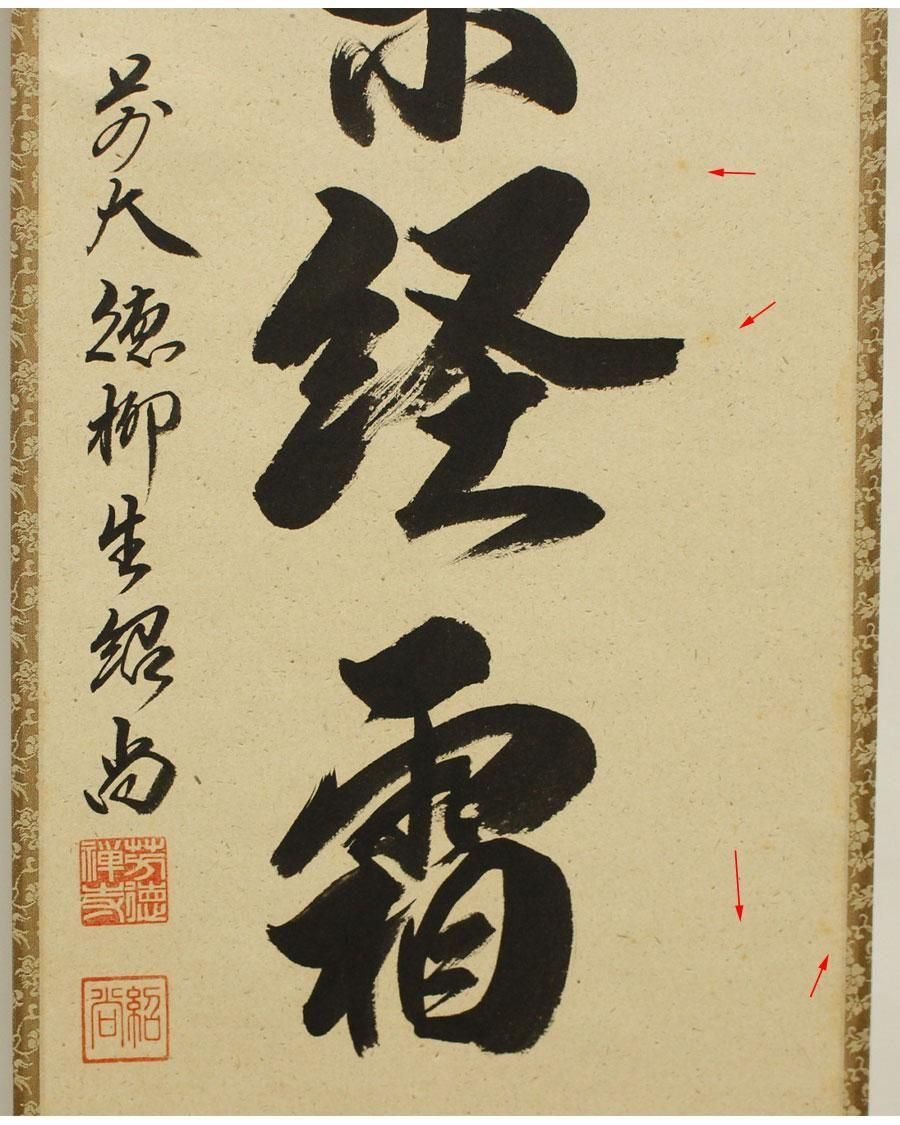 経霜
前大徳柳生紹尚
芳徳
禅寺
紹尚